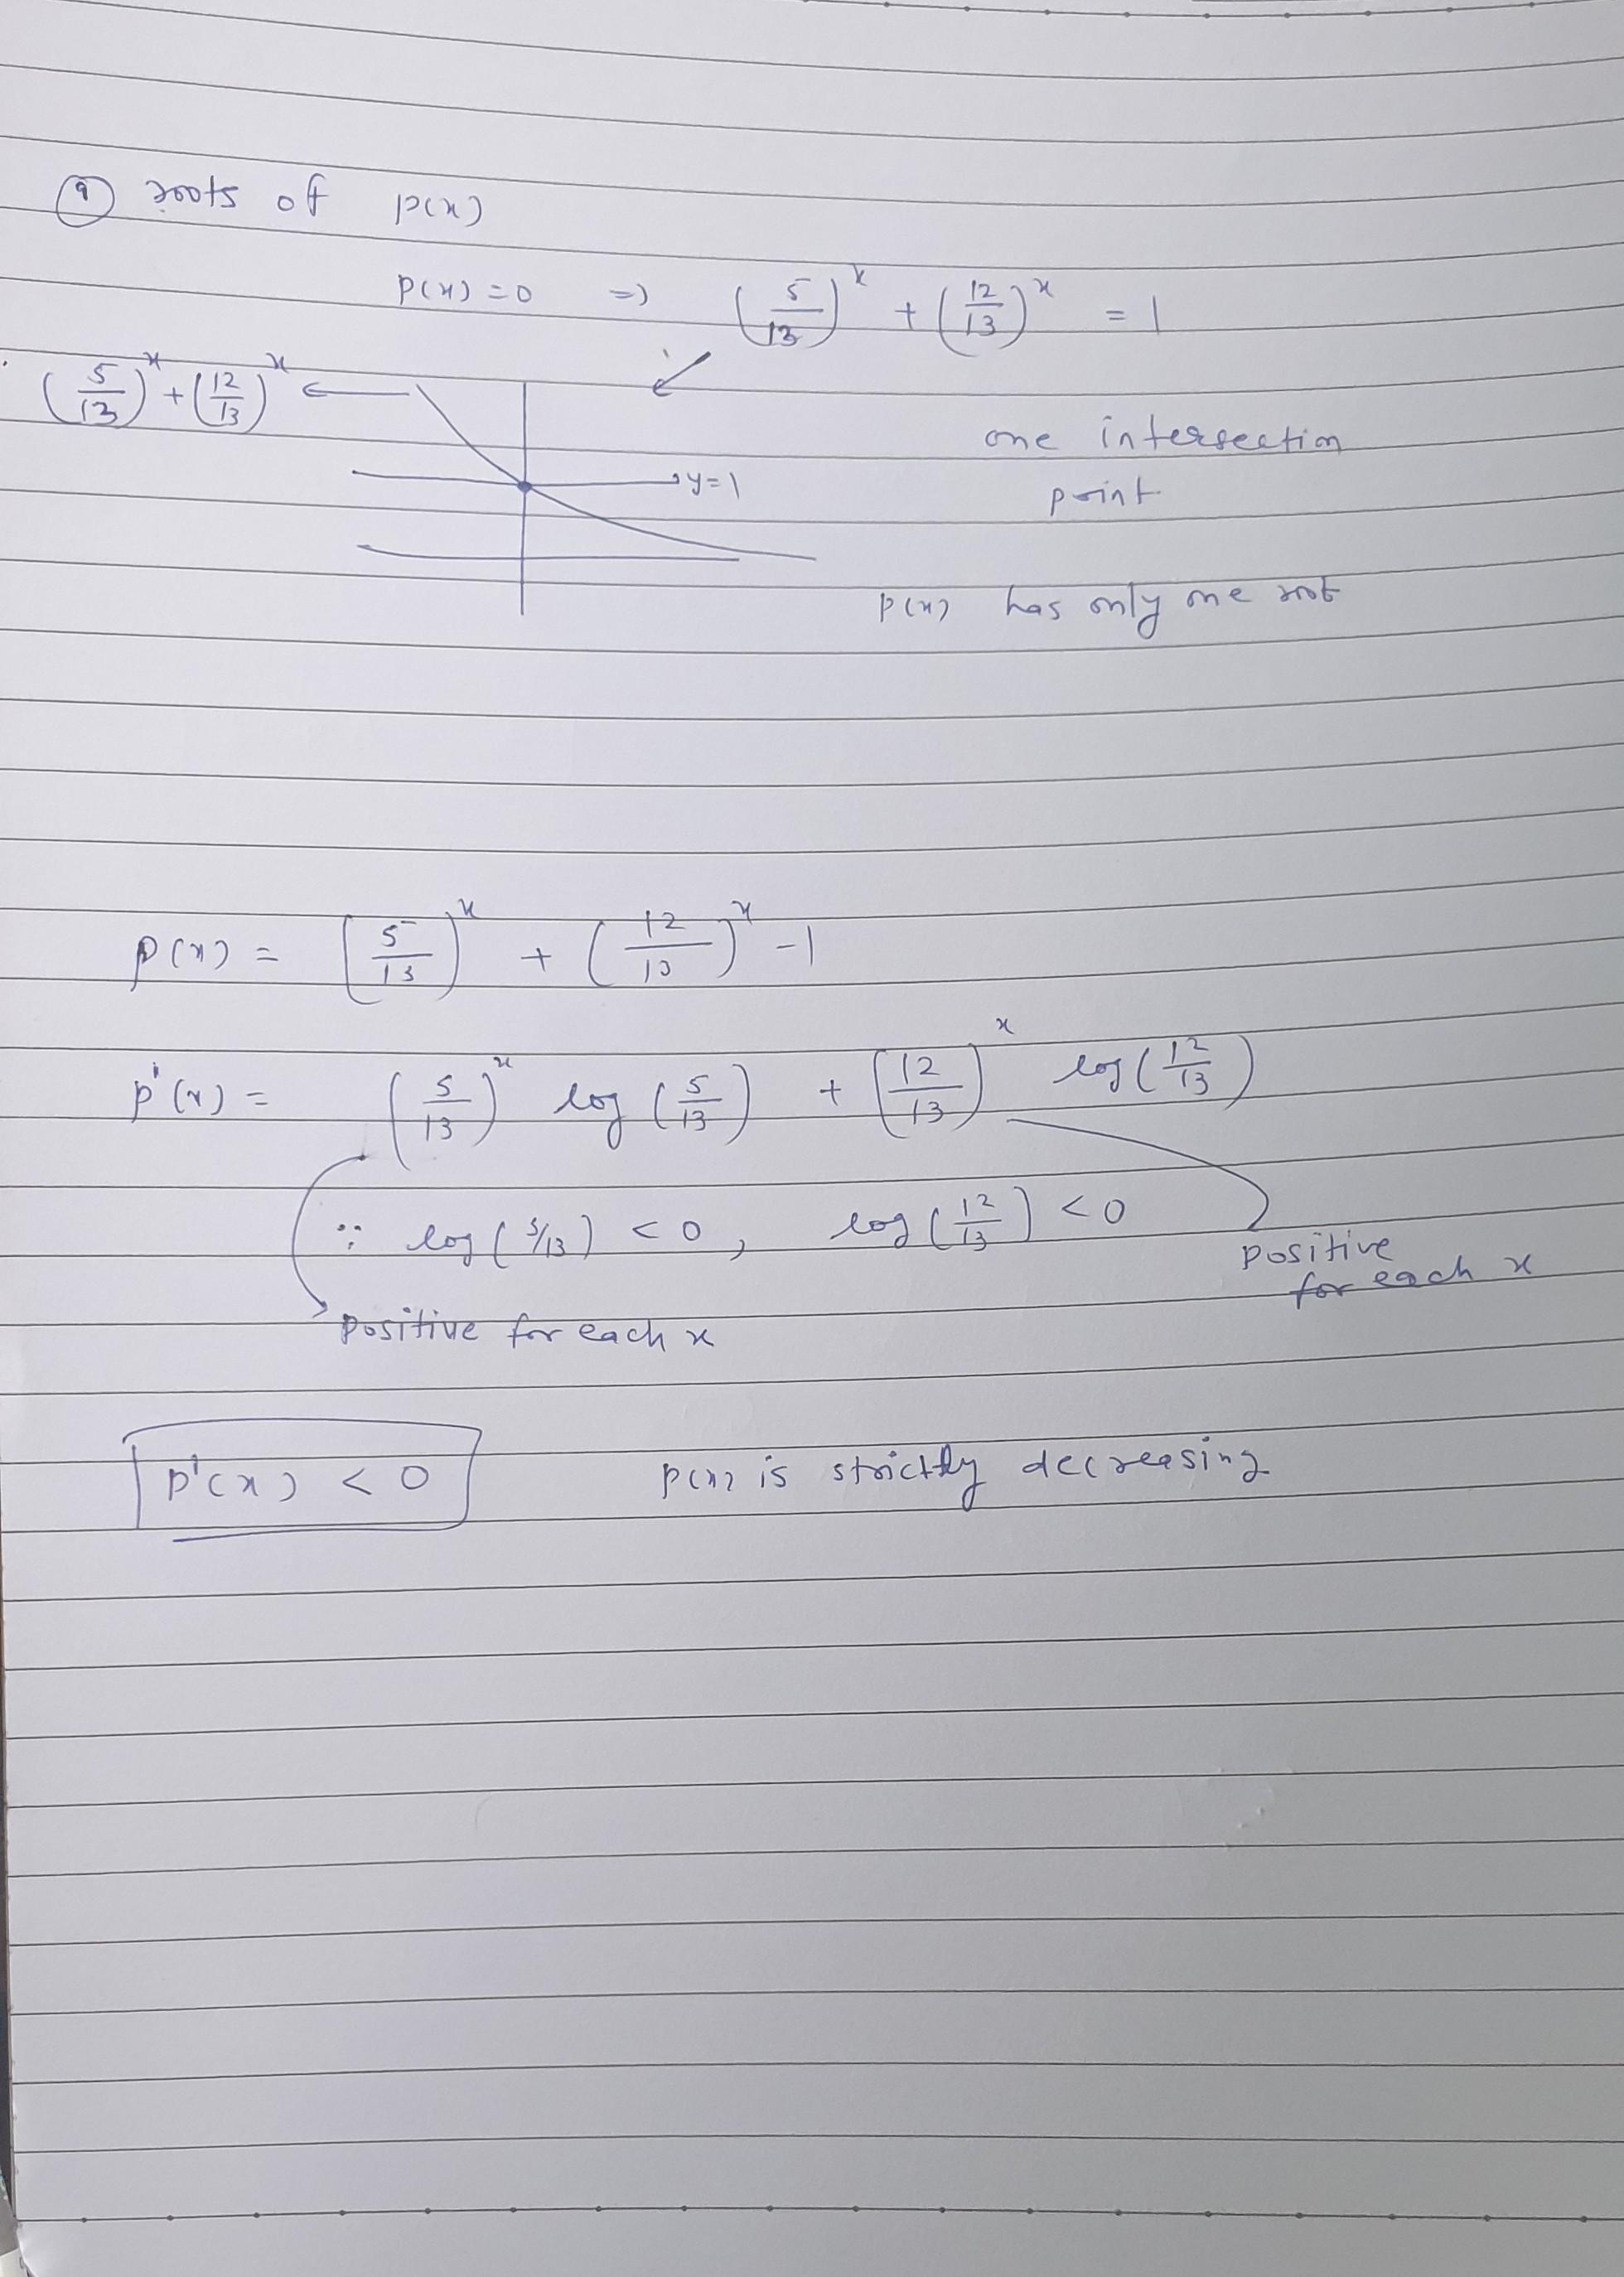 (9) roots of p(x)
p(x) = 0 => (5/13)^x + (12/13)^x = 1
(5/13)^x + (12/13)^x ←
→ y=1
one intersection
point
p(x) has only one root
p(x) = (5/13)^x + (12/13)^x - 1
p'(x) = (5/13)^x log (5/13) + (12/13)^x log (12/13)
∵ log (5/13) < 0, log (12/13) < 0
positive
for each x
positive for each x
p'(x) < 0 p(x) is strictly decreasing